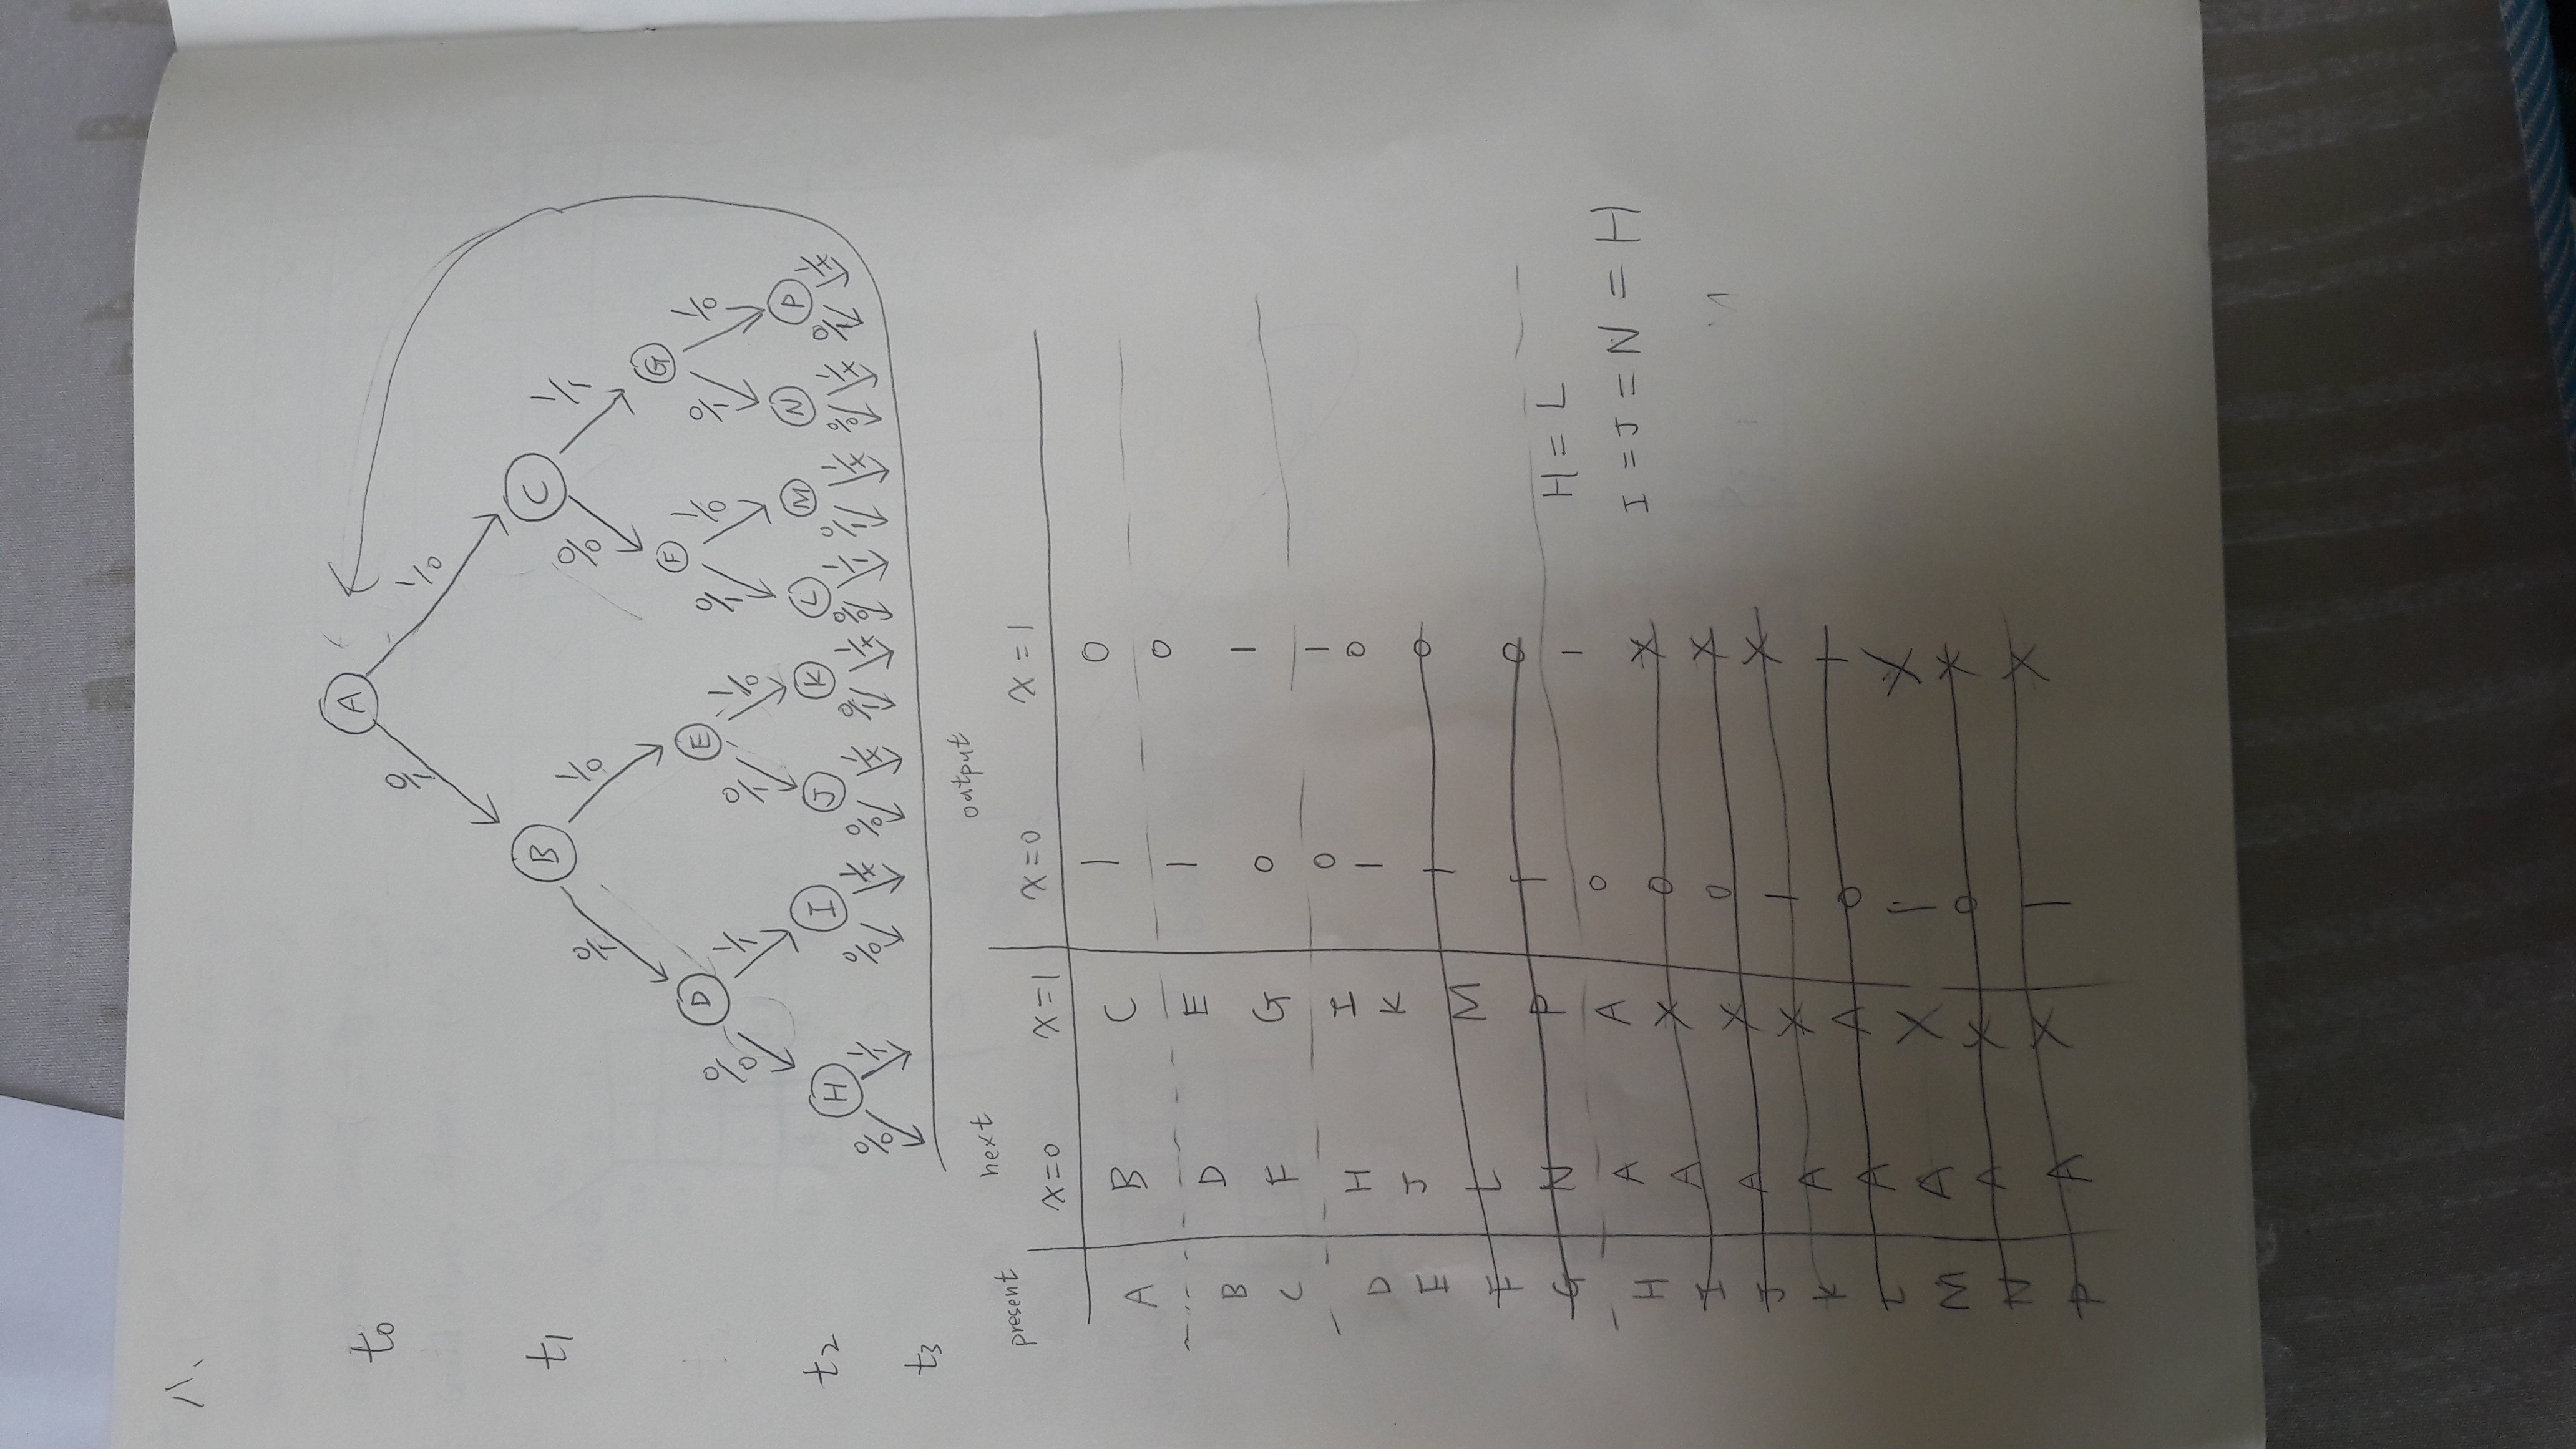 八、
t0
A
0/1 1/0
t1
B C
0/1 1/0 0/0 1/1
D E F G
0/0 1/1 0/1 1/0 0/1 1/0 0/1 1/0
t2
H I J K L M N P
0/0 1/1 0/0 1/X 0/0 1/X 0/1 1/X 0/0 1/1 0/1 1/X 0/0 1/X 0/1 1/X
t3
present next output
X=0 X=1 X=0 X=1
A B C 1 0
B D E 1 0
C F G 0 1
D H I 0 1
E J K 1 0
F L M 1 0
G N P 1 0
H A A 0 1
I A X 0 X
J A X 0 X
K A X 1 X
L A A 0 1
M A X 1 X
N A X 0 X
P A X 1 X
H = L
I = J = N = H